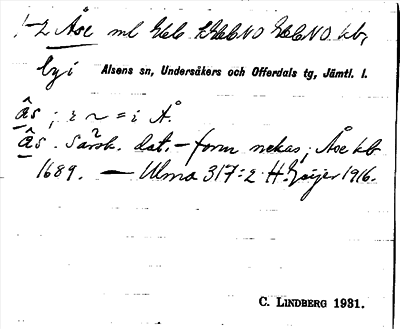 1-2 Åse ml GEb SGEbNO GEbNO kb,
by i Alsens sn, Undersåkers och Offerdals tg, Jämtl. l.
âs ; i ~ = i Å.
âs. Särsk. dat.-form nekas; Åse kb
1689. — Ulma 317:2 H. Geijer 1916.
C. LINDBERG 1931.